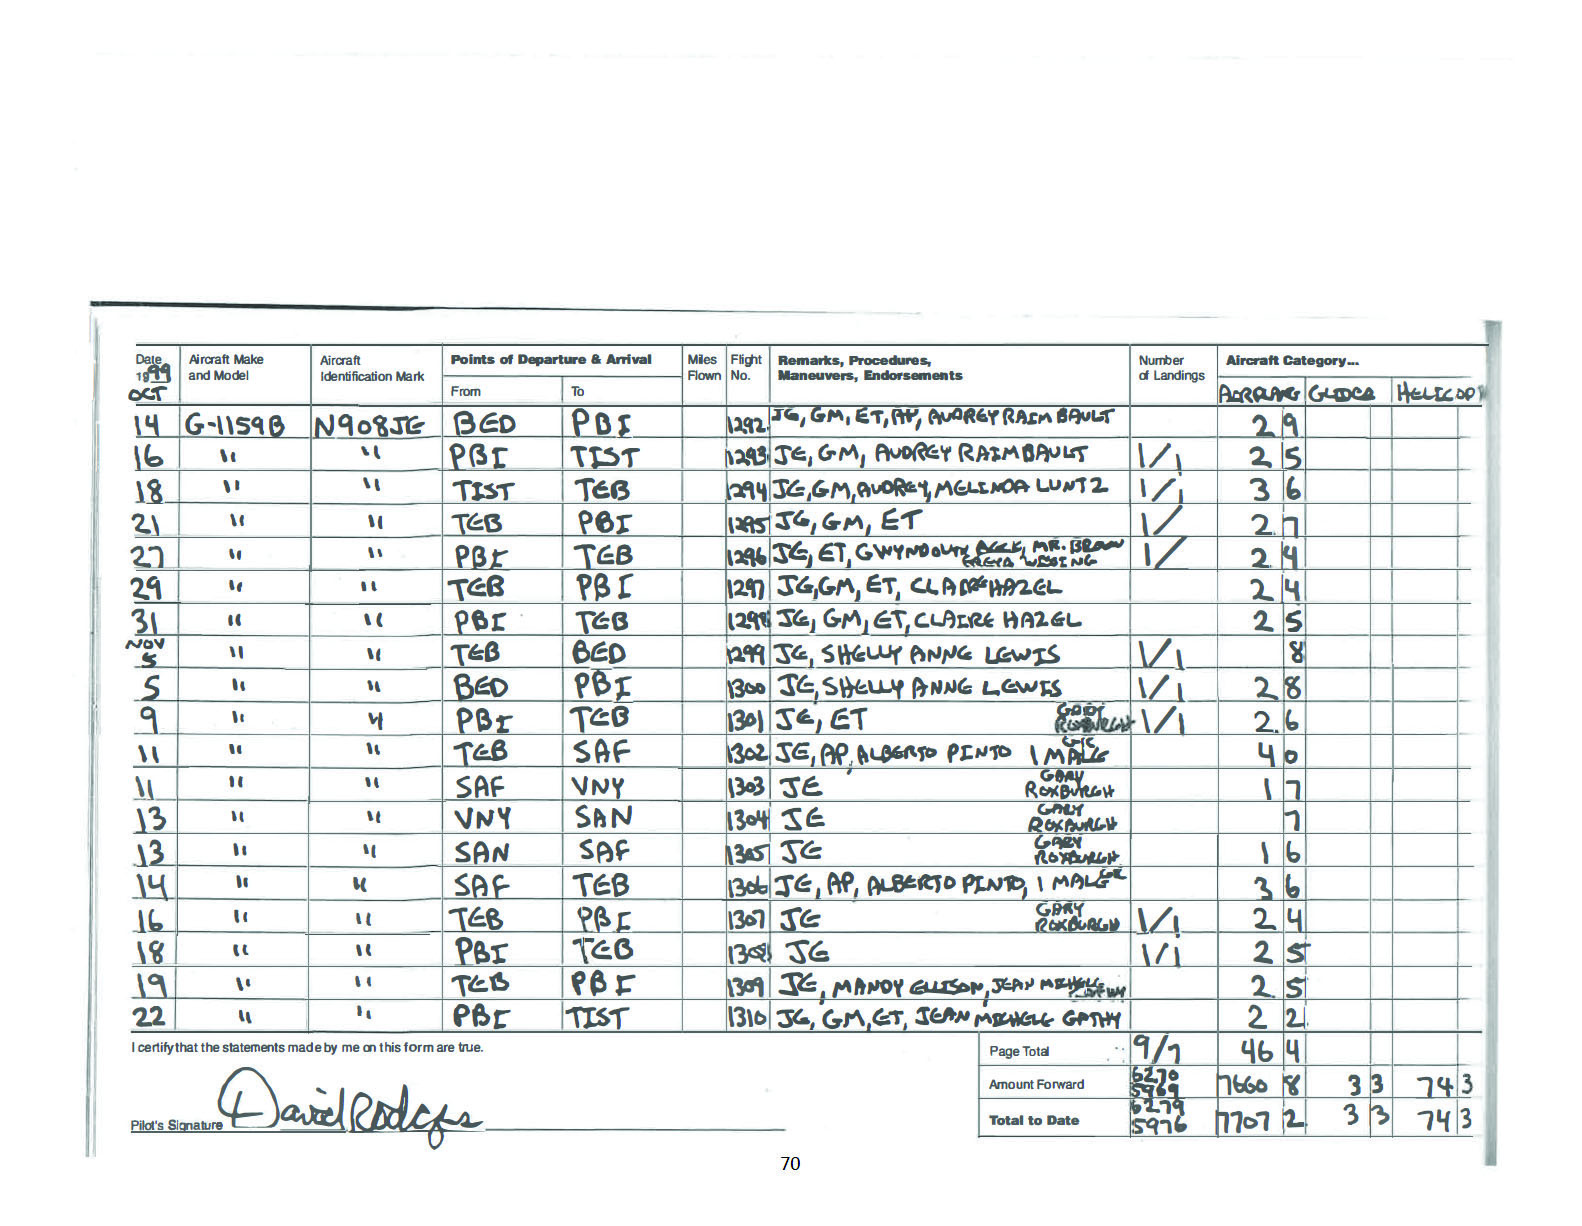 Date Aircraft Make Aircraft Points of Departure & Arrival Miles Flight Remarks, Procedures, Number Aircraft Category...
1999 and Model Identification Mark From To Flown No. Maneuvers, Endorsements of Landings
OCT AIRPLANE GLIDER HELICOP
14 G-1159B N908JE BED PBI 1292 JE, GM, ET, AP, AUDREY RAIMBAULT 2 9
16 " " PBI TIST 1293 JE, GM, AUDREY RAIMBAULT 1/1 2 5
18 " " TIST TEB 1294 JE, GM, AUDREY, MELINDA LUNTZ 1/1 3 6
21 " " TEB PBI 1295 JE, GM, ET 1/ 2 7
27 " " PBI TEB 1296 JE, ET, MR. 1/ 2 4
29 " " TEB PBI 1297 JE, GM, ET, CLAIRE HAZEL 2 4
31 " " PBI TEB 1298 JE, GM, ET, CLAIRE HAZEL 2 5
NOV
5 " " TEB BED 1299 JE, SHELLY ANNE LEWIS 1/1 8
5 " " BED PBI 1300 JE, SHELLY ANNE LEWIS 1/1 2 8
9 " " PBI TEB 1301 JE, ET GARY ROXBURGH 1/1 2.6
11 " " TEB SAF 1302 JE, AP, ALBERTO PINTO 1 MALE 4 0
11 " " SAF VNY 1303 JE GARY ROXBURGH 1 7
13 " " VNY SAN 1304 JE GARY ROXBURGH 7
13 " " SAN SAF 1305 JE GARY ROXBURGH 1 6
14 " " SAF TEB 1306 JE, AP, ALBERTO PINTO, 1 MALE 3 6
16 " " TEB PBI 1307 JE GARY ROXBURGH 1/1 2 4
18 " " PBI TEB 1308 JE 1/1 2 5
19 " " TEB PBI 1309 JE, MANDY ELLISON, JEAN MICHELE 2 5
22 " " PBI TIST 1310 JE, GM, ET, JEAN MICHELE GATHY 2 2
I certify that the statements made by me on this form are true. Page Total 9/7 46 4
Amount Forward 6270 5969 7660 8 3 3 74 3
Pilot's Signature David Rodgers Total to Date 6279 5976 7707 2 3 3 74 3
70